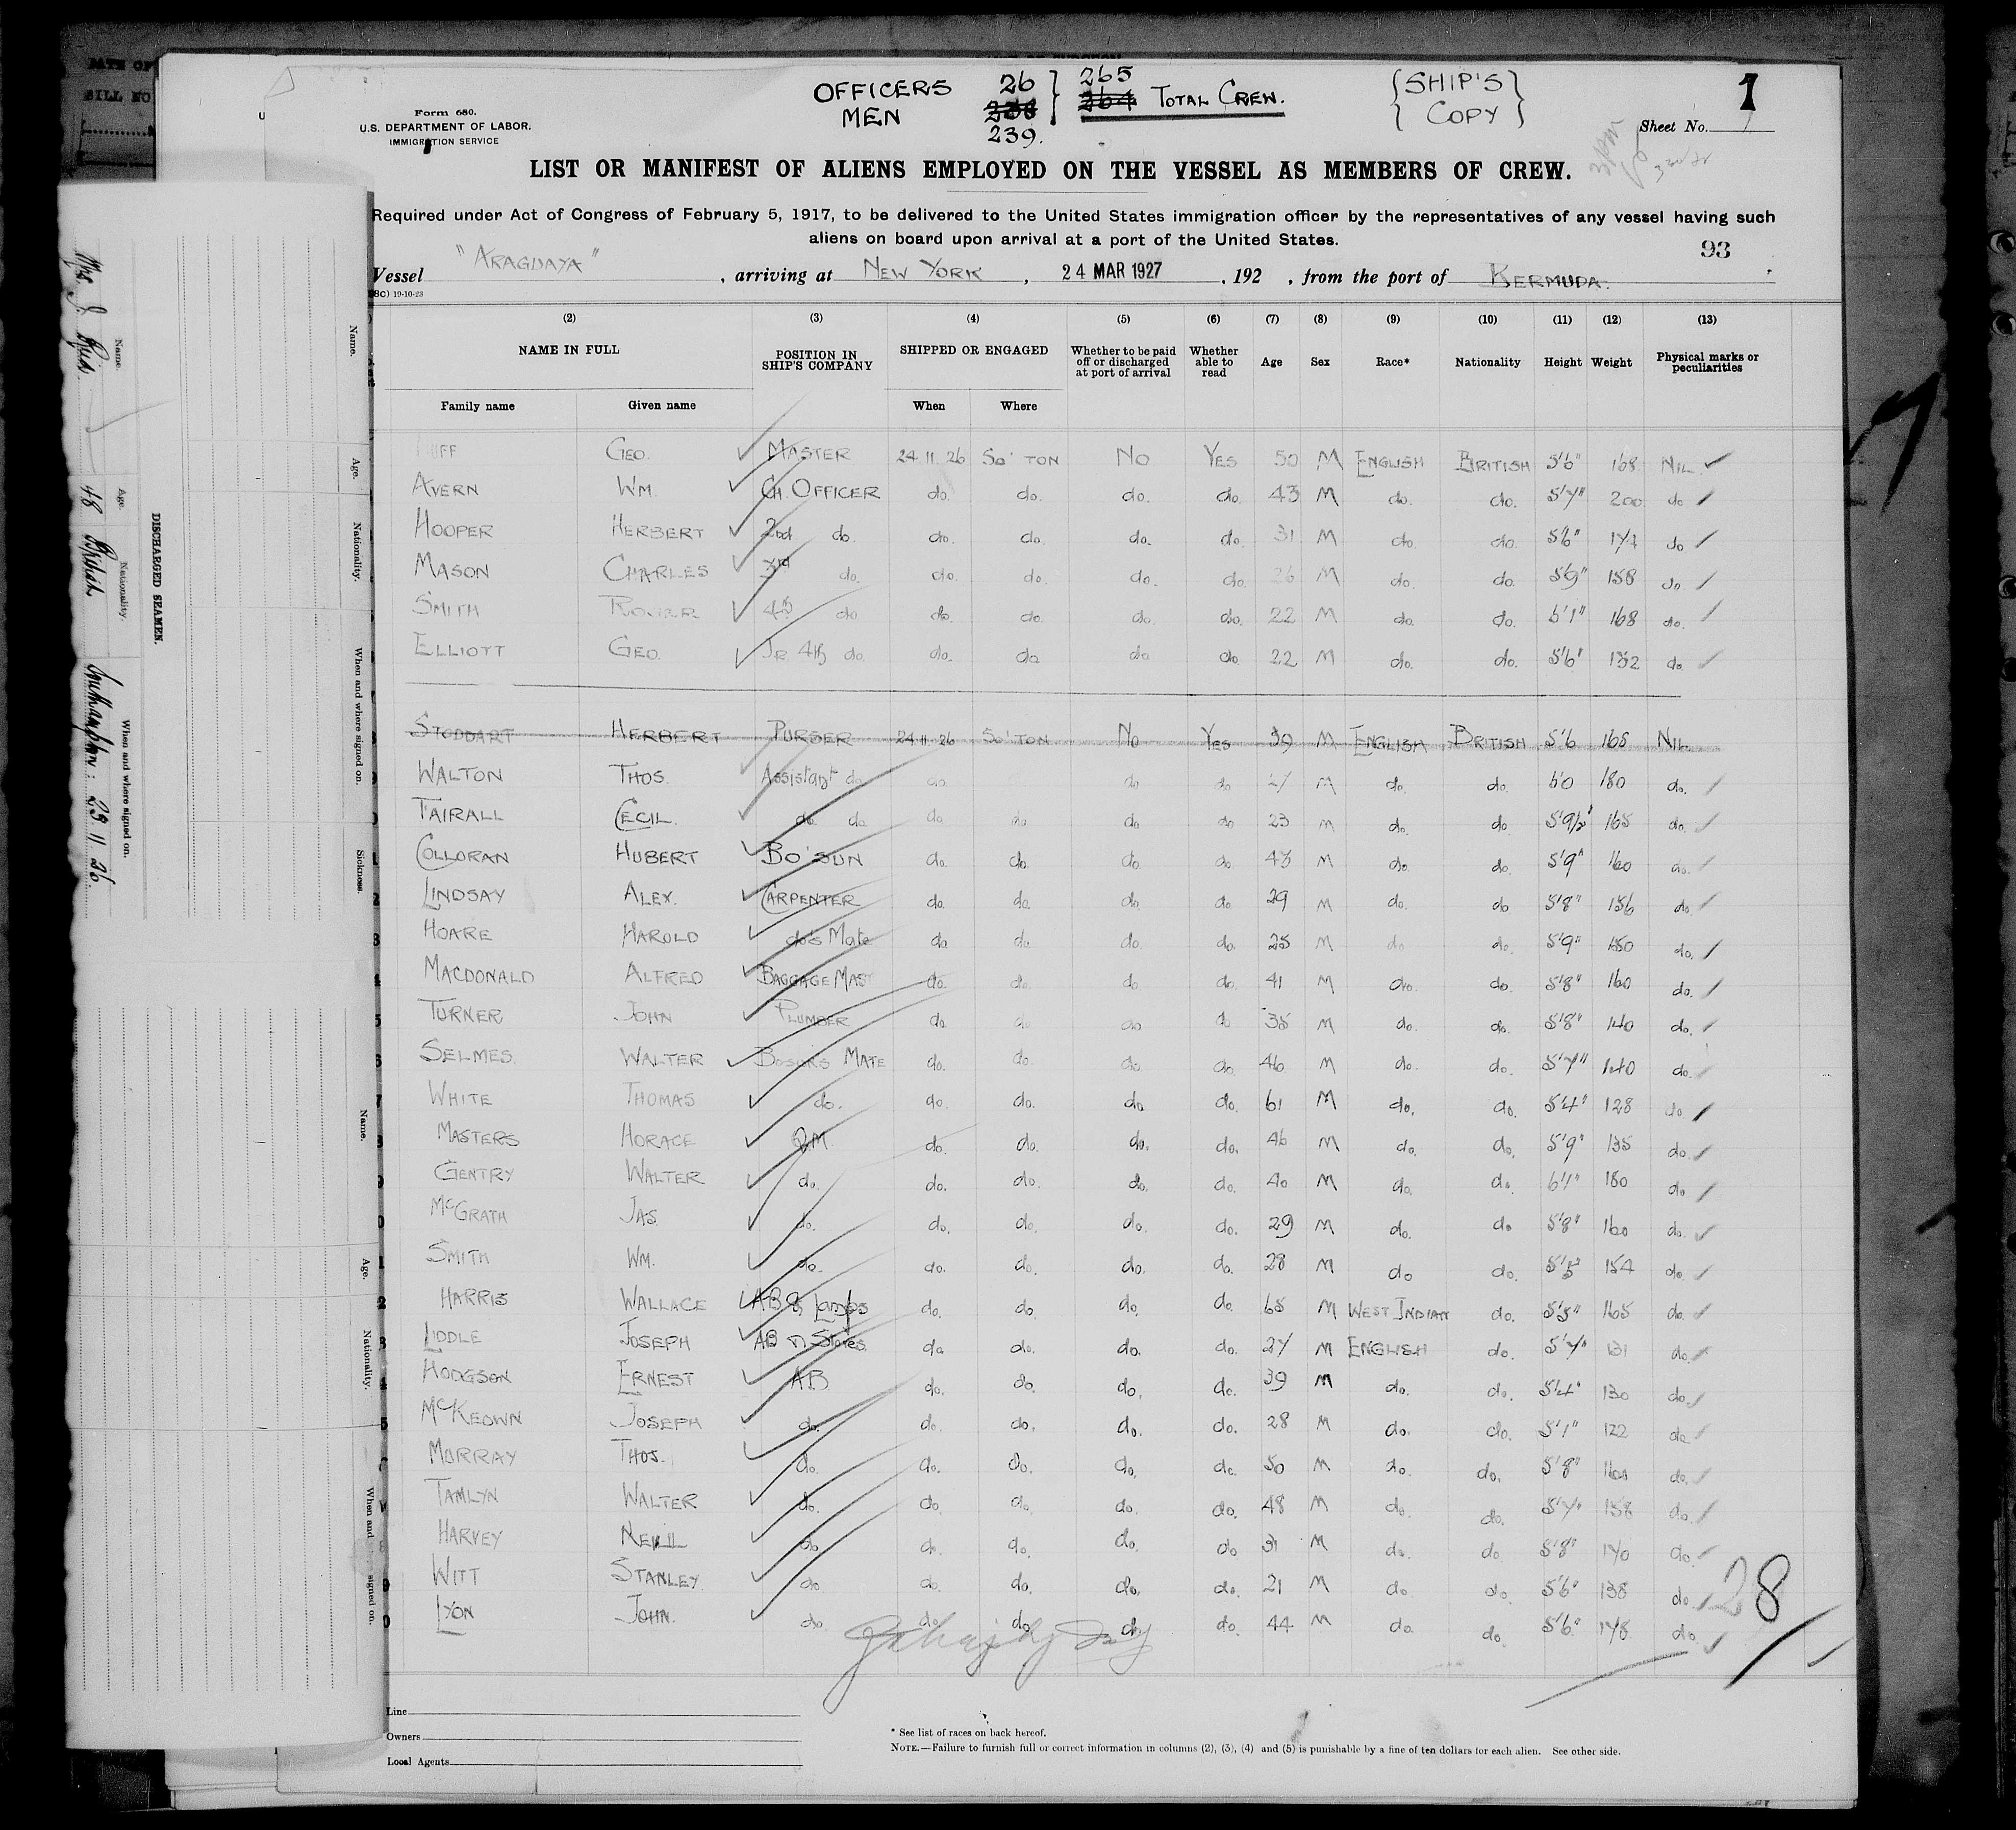 OFFICERS 26 } 265
MEN 238 } 264 TOTAL CREW.
239.
{SHIP'S}
{COPY}
1
Form 680.
U.S. DEPARTMENT OF LABOR.
IMMIGRATION SERVICE
Sheet No.
LIST OR MANIFEST OF ALIENS EMPLOYED ON THE VESSEL AS MEMBERS OF CREW.
Required under Act of Congress of February 5, 1917, to be delivered to the United States immigration officer by the representatives of any vessel having such
aliens on board upon arrival at a port of the United States.
93
Vessel "ARAGUAYA", arriving at NEW YORK, 24 MAR 1927, 192 , from the port of BERMUDA.
19-10-23
(2) (3) (4) (5) (6) (7) (8) (9) (10) (11) (12) (13)
NAME IN FULL POSITION IN SHIP'S COMPANY SHIPPED OR ENGAGED Whether to be paid off or discharged at port of arrival Whether able to read Age Sex Race* Nationality Height Weight Physical marks or peculiarities
Family name Given name When Where
GEO. MASTER 24 11 26 SO'TON NO YES 50 M ENGLISH BRITISH 5'6" 168 NIL
AVERN WM. CH. OFFICER do. do. do. do. 43 M do. do. 5'7" 200 do
HOOPER HERBERT 2nd do. do. do. do. do. 31 M do. do. 5'6" 174 do
MASON CHARLES 3rd do. do. do. do. do. 26 M do. do. 5'9" 158 do
SMITH 4th do do. do. do. do. 22 M do. do. 6'1" 168 do.
ELLIOTT GEO. JR 4th do. do. do do do. 22 M do. do. 5'6" 132 do.
STODDART HERBERT PURSER 24 11 26 SO'TON NO YES 39 M ENGLISH BRITISH 5'6 168 NIL
WALTON THOS. Assistant do do do do M do. do. 6'0 180 do.
FAIRALL CECIL. do. do do do do do 23 M do. do 5'9½" 165 do.
COLLORAN HUBERT BO'SUN do. do. do. do 43 M do. do. 5'9" 160 do.
LINDSAY ALEX. CARPENTER do. do. do. do 29 M do. do 5'8" 156 do.
HOARE HAROLD do's Mate do do. do. do. 25 M do do. 5'9" 150 do.
MACDONALD ALFRED BAGGAGE MAST do. do. do do. 41 M do. do. 5'8" 160 do.
TURNER JOHN PLUMBER do do do do 35 M do. do. 5'8" 140 do.
SELMES. WALTER BOSUN'S MATE do. do. do. do. 46 M do. do. 5'7" 140 do.
WHITE THOMAS do. do. do. do do. 61 M do. do. 5'4" 128 do
MASTERS HORACE QM. do. do. do. do. 46 M do. do. 5'9" 135 do.
GENTRY WALTER do. do. do. do. do. 40 M do. do. 6'1" 180 do
McGRATH JAS. do. do. do. do. do. 29 M do. do 5'8" 160 do.
SMITH WM. do. do. do. do. do. 28 M do do. 154 do.
HARRIS WALLACE AB & Lamps do. do do. do. 65 M WEST INDIAN do. 5'5" 165 do.
LIDDLE JOSEPH AB & Stores do do. do. do. 27 M ENGLISH do. 5'7" 131 do.
HODGSON ERNEST AB do. do. do. do. 39 M do. do. 5'4" 130 do.
McKEOWN JOSEPH do. do. do. do. do. 28 M do. do. 5'1" 122 do
MORRAY THOS. do. do. do. do. do. 50 M do. do. 5'8" 160 do.
TAMLYN WALTER do. do. do. do. do. 48 M do. do. 5'7" 158 do.
HARVEY NEILL do do. do. do. do 31 M do. do. 5'8" 170 do.
WITT STANLEY. do do. do. do. do. 21 M do. do. 5'6" 138 do.
LYON JOHN. do. do. do. do. do. 44 M do. do. 5'6" 178 do.
28
Line
Owners
Local Agents
* See list of races on back hereof.
NOTE.—Failure to furnish full or correct information in columns (2), (3), (4) and (5) is punishable by a fine of ten dollars for each alien. See other side.
DISCHARGED SEAMEN.
Name. Age. Nationality. When and where signed on.
48 British Southampton: 23.11.26.
Name. Age. Nationality. When and where signed on. Sickness.
Name. Age. Nationality. When and signed on.